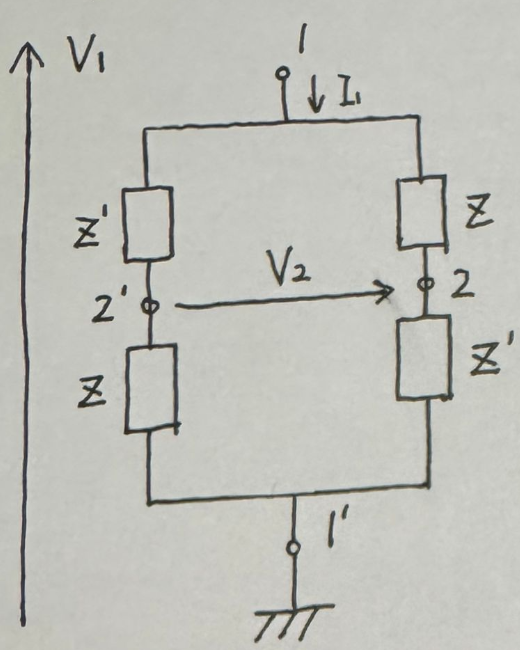 V₁
1
I₁
Z'
Z
V₂
2'
2
Z
Z'
1'